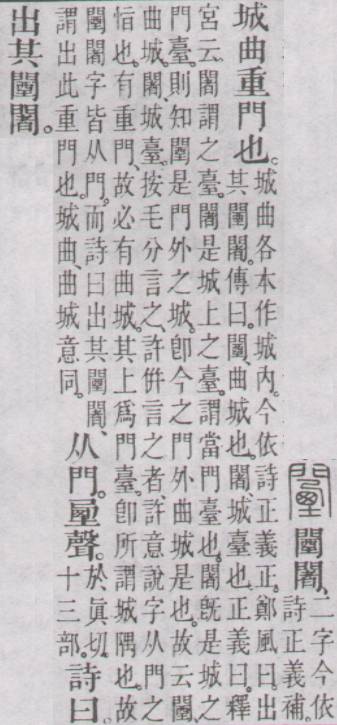 闉闍、
二字今依
詩正義補。
城曲重門也。
城曲各本作城內。今依詩正義正。鄭風曰。出
其闉闍。傳曰。闉、曲城也。闍、城臺也。正義曰。釋
宮云。闍謂之臺。闍是城上之臺。謂當門臺也。闍旣是城之
門臺。則知闉是門外之城。卽今之門外曲城是也。故云闉、
曲城。闍、城臺。按毛分言之、許倂言之者、許意說字从門之
恉也。有重門、故必有曲城。其上爲門臺。卽所謂城隅也。故
闉闍字皆从門。而詩曰出其闉闍、
謂出此重門也。城曲、曲城意同。
从門。垔聲。
於眞切。
十三部。
詩曰。
出其闉闍。